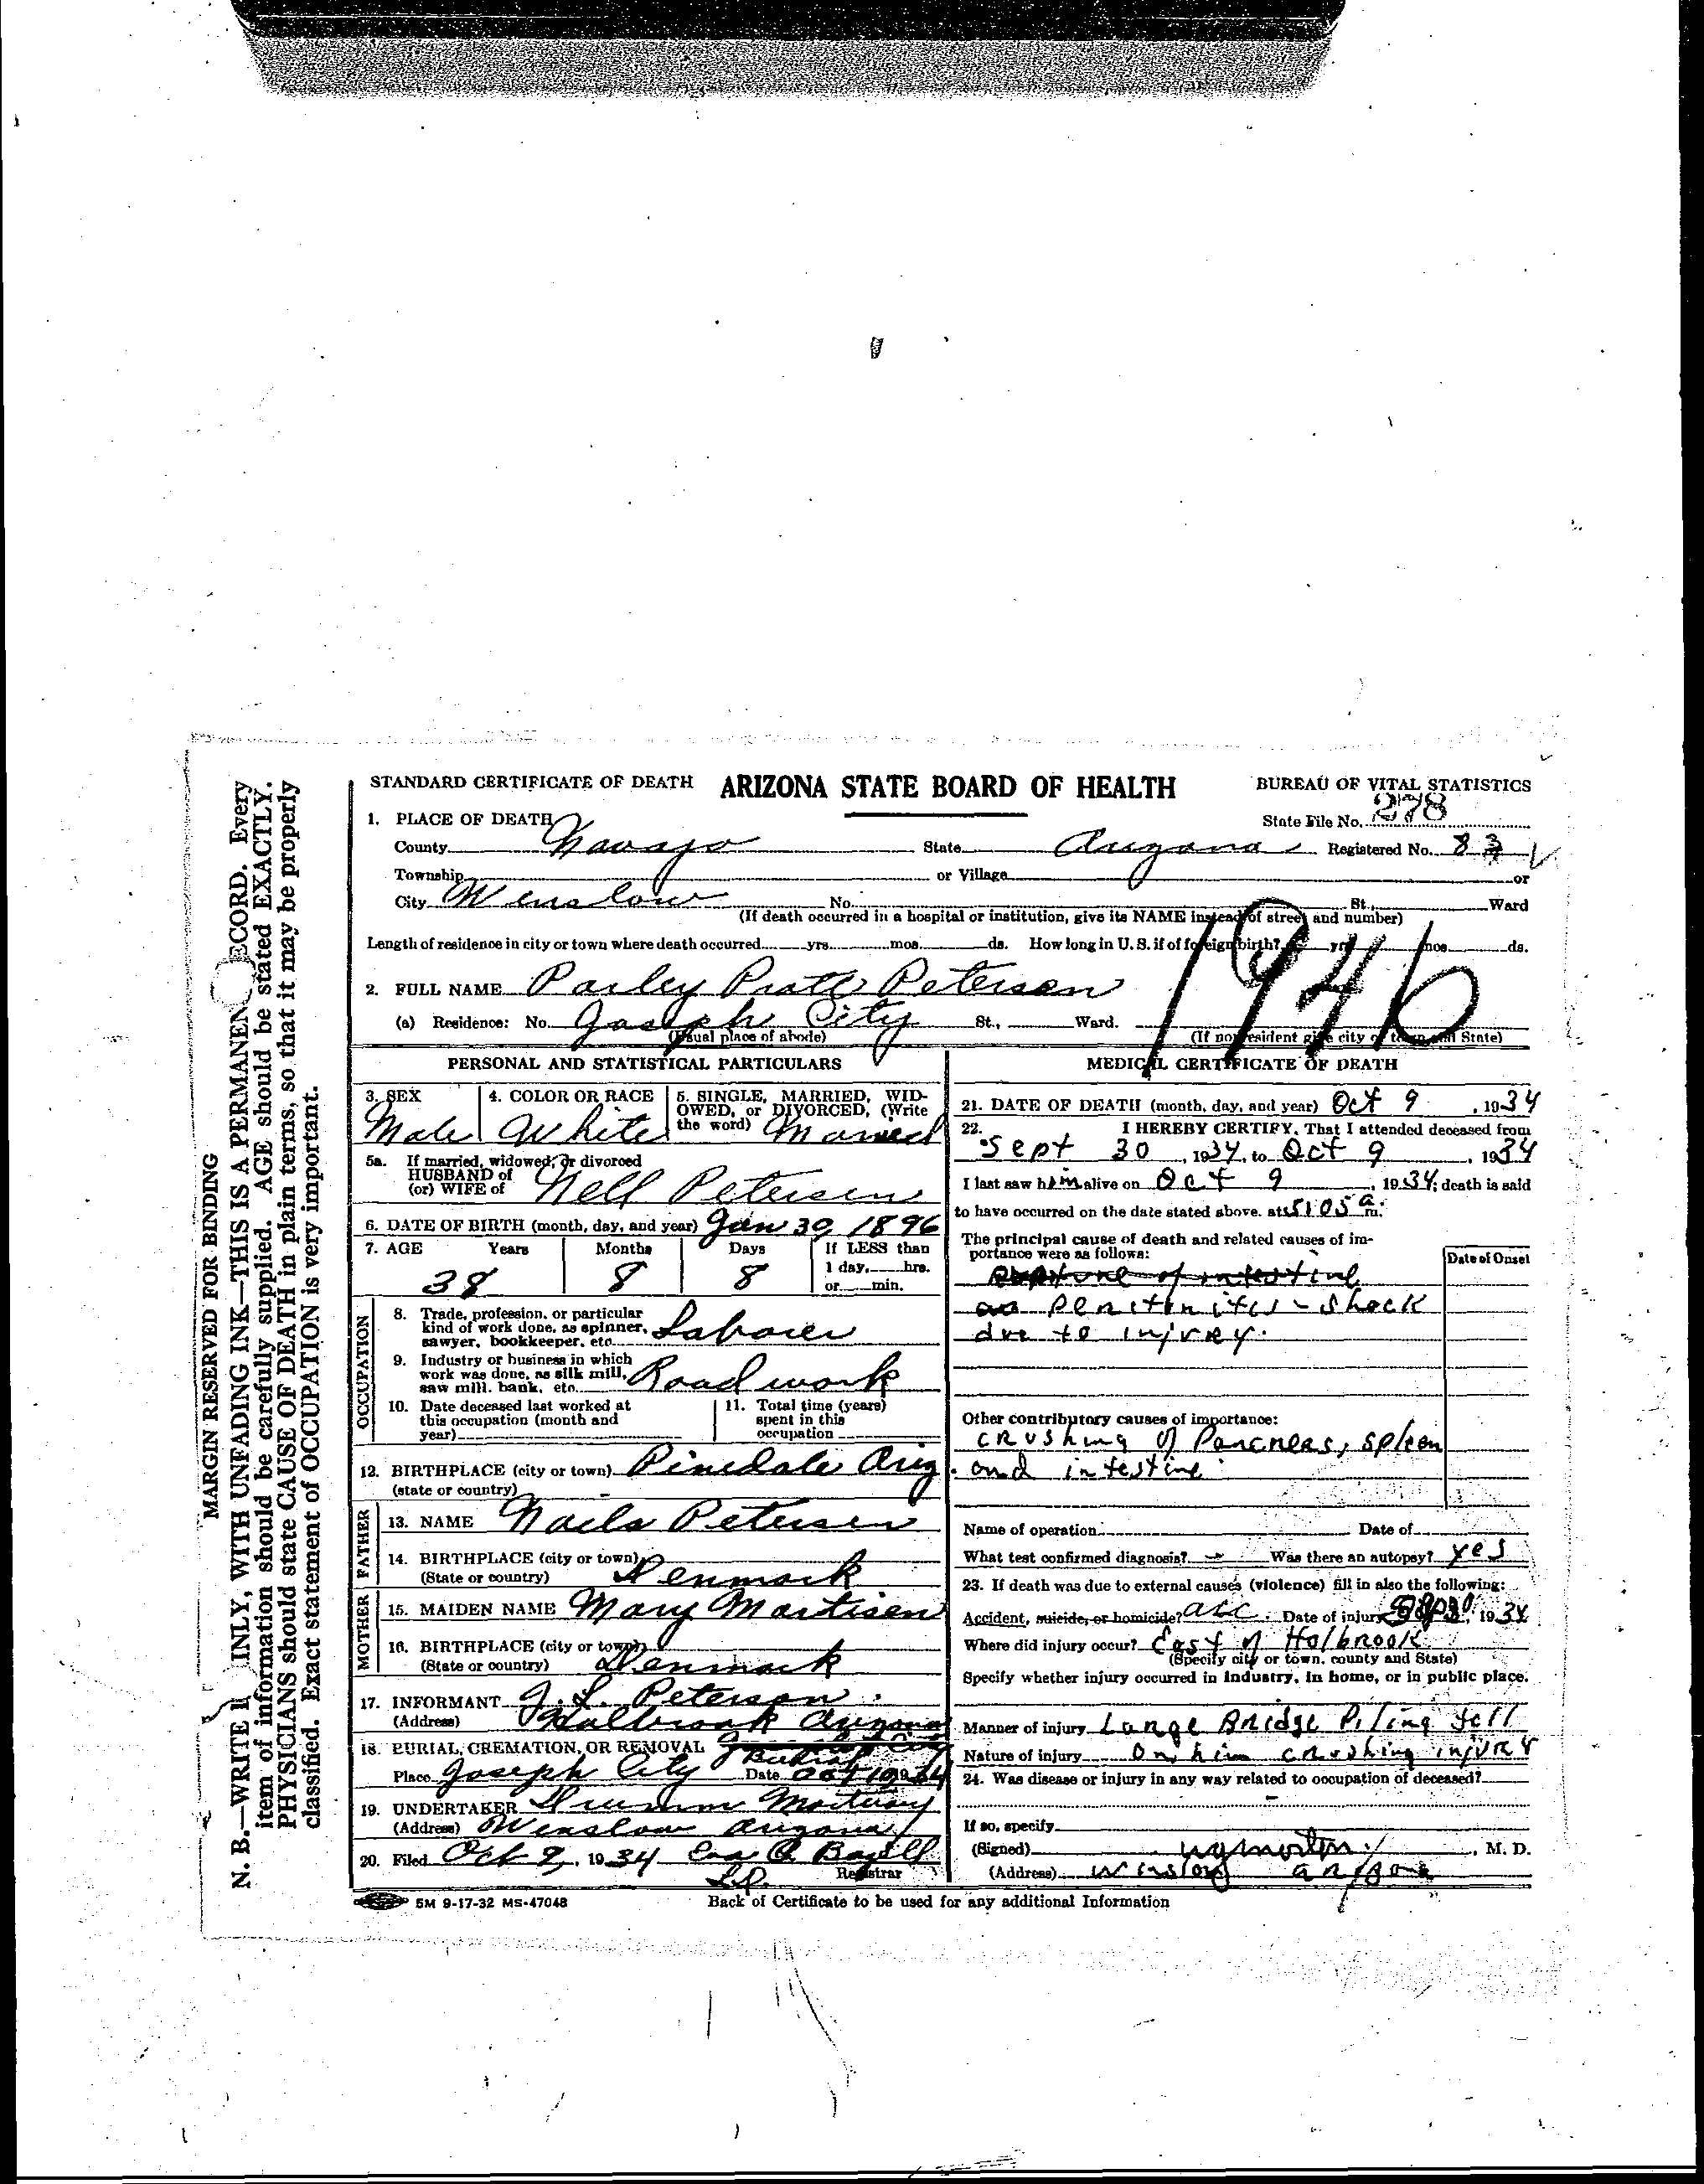 STANDARD CERTIFICATE OF DEATH ARIZONA STATE BOARD OF HEALTH BUREAU OF VITAL STATISTICS
1. PLACE OF DEATH State File No. 278
County Navajo State Arizona Registered No. 83
Township or Village or
City Winslow No. St., Ward
(If death occurred in a hospital or institution, give its NAME instead of street and number)
Length of residence in city or town where death occurred yrs. mos. ds. How long in U. S. if of foreign birth? yrs. mos. ds.
1946
2. FULL NAME Parley Pratt Petersen
(a) Residence: No. Joseph City St., Ward.
(Usual place of abode) (If nonresident give city or town and State)
PERSONAL AND STATISTICAL PARTICULARS
3. SEX Male
4. COLOR OR RACE White
5. SINGLE, MARRIED, WIDOWED, or DIVORCED, (Write the word) Married
5a. If married, widowed, or divorced
HUSBAND of
(or) WIFE of Nell Petersen
6. DATE OF BIRTH (month, day, and year) Jan 30, 1896
7. AGE Years Months Days If LESS than
1 day, hrs.
or min.
38 8 8
OCCUPATION
8. Trade, profession, or particular
kind of work done, as spinner,
sawyer, bookkeeper, etc. Laborer
9. Industry or business in which
work was done, as silk mill,
saw mill, bank, etc. Road work
10. Date deceased last worked at
this occupation (month and
year)
11. Total time (years)
spent in this
occupation
12. BIRTHPLACE (city or town) Pinedale Ariz.
(state or country)
FATHER
13. NAME Neils Petersen
14. BIRTHPLACE (city or town)
(State or country) Denmark
MOTHER
15. MAIDEN NAME Mary Martisen
16. BIRTHPLACE (city or town)
(State or country) Denmark
17. INFORMANT J. L. Peterson
(Address) Holbrook Arizona
18. BURIAL, CREMATION, OR REMOVAL Burial
Place Joseph City Date Oct 10 1934
19. UNDERTAKER Mortuary
(Address) Winslow Arizona
20. Filed Oct 9, 1934
Registrar
MEDICAL CERTIFICATE OF DEATH
21. DATE OF DEATH (month, day, and year) Oct 9, 1934
22. I HEREBY CERTIFY, That I attended deceased from
Sept 30, 1934, to Oct 9, 1934
I last saw him alive on Oct 9, 1934; death is said
to have occurred on the date stated above, at 5:05 a. m.
The principal cause of death and related causes of importance were as follows:
Date of Onset
Rupture of intestine
peritonitis - shock
due to injury.
Other contributory causes of importance:
crushing of Pancreas, spleen
and intestine
Name of operation Date of
What test confirmed diagnosis? Was there an autopsy? Yes
23. If death was due to external causes (violence) fill in also the following:
Accident, suicide, or homicide? acc Date of injury 1934
Where did injury occur? East of Holbrook
(Specify city or town, county and State)
Specify whether injury occurred in industry, in home, or in public place.
Manner of injury Large Bridge Piling fell
Nature of injury on him crushing injury
24. Was disease or injury in any way related to occupation of deceased?
If so, specify
(Signed) M. D.
(Address) Winslow Arizona
5M 9-17-32 MS-47048 Back of Certificate to be used for any additional Information
MARGIN RESERVED FOR BINDING
N. B.—WRITE INLY, WITH UNFADING INK—THIS IS A PERMANEN ECORD. Every
item of information should be carefully supplied. AGE should be stated EXACTLY.
PHYSICIANS should state CAUSE OF DEATH in plain terms, so that it may be properly
classified. Exact statement of OCCUPATION is very important.